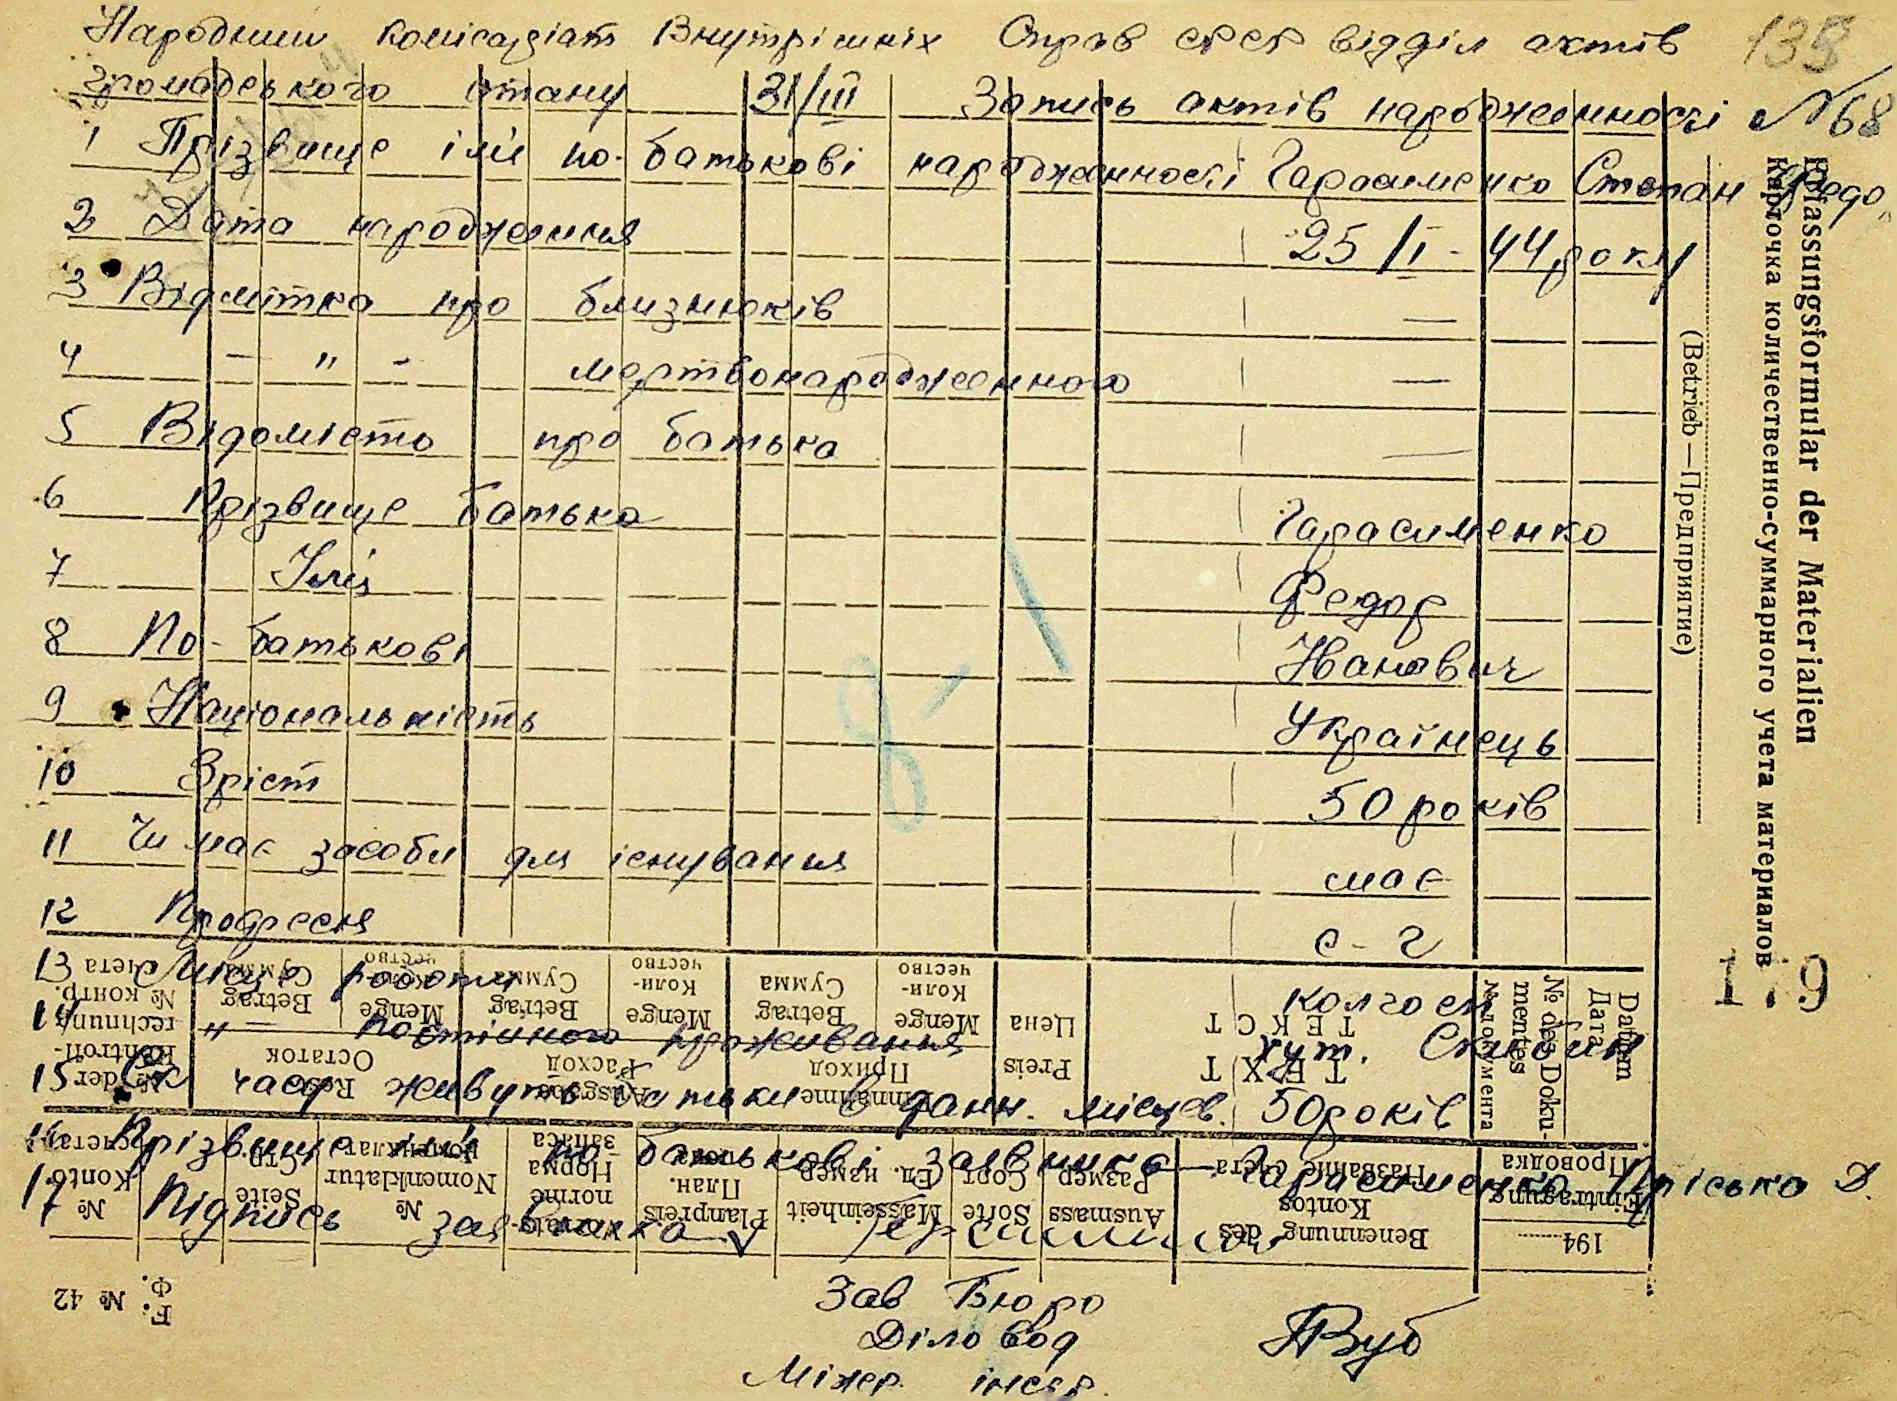 Народний комісаріат Внутрішніх Справ СРСР відділ актів 138
громадського стану 31/III Запись актів народженності № 68
1 Прізвище ім'я по-батькові народженності Гарасименко Степан Федо
2 Дата народження 25/I - 44 року
3 Відмітка про близнюків —
4 — " - мертвонародженного —
5 Відомісто про батька —
6 Прізвище батька Гарасименко
7 Імя Федор
8 По-батькові Иванович
9 Національність Українець
10 Зріст 50 років
11 Чи має засоби для існування має
12 Професія с-г
13 Місце роботи колгосп
14 " — постійного проживання хут. Скибин
15 часу живуть батьки в данн. місцев. 50 років
16 Прізвище ім'я по батькові заявника — Гарасименко Пріська Д.
17 Підпись заявника
Зав Бюро
Діловод
інсп.
Erfassungsformular der Materialien
Карточка количественно-суммарного учета материалов
(Betrieb—Предприятие)
179
Datum
Дата
№ des Doku-
mentes
№ документа
TEXT
ТЕКСТ
Preis
Цена
Einnahme
Приход
Menge
Коли-
чество
Betrag
Сумма
Ausgabe
Расход
Menge
Коли-
чество
Betrag
Сумма
Rest
Остаток
Menge
Коли-
чество
Betrag
Сумма
№ der
Kontroll-
rechnung
№ контр.
счета
194
Eintragung
Проводка
Benennung des
Kontos
Название счета
Ausmass
Размер
Sorte
Сорт
Masseinheit
Ед. измер.
Planpreis
План.
цена
Vorrats-
norme
Норма
запаса
№
Nomenklatur
номенклат.
Seite
Стр.
№
Konto
счета
F. № 42
Ф.